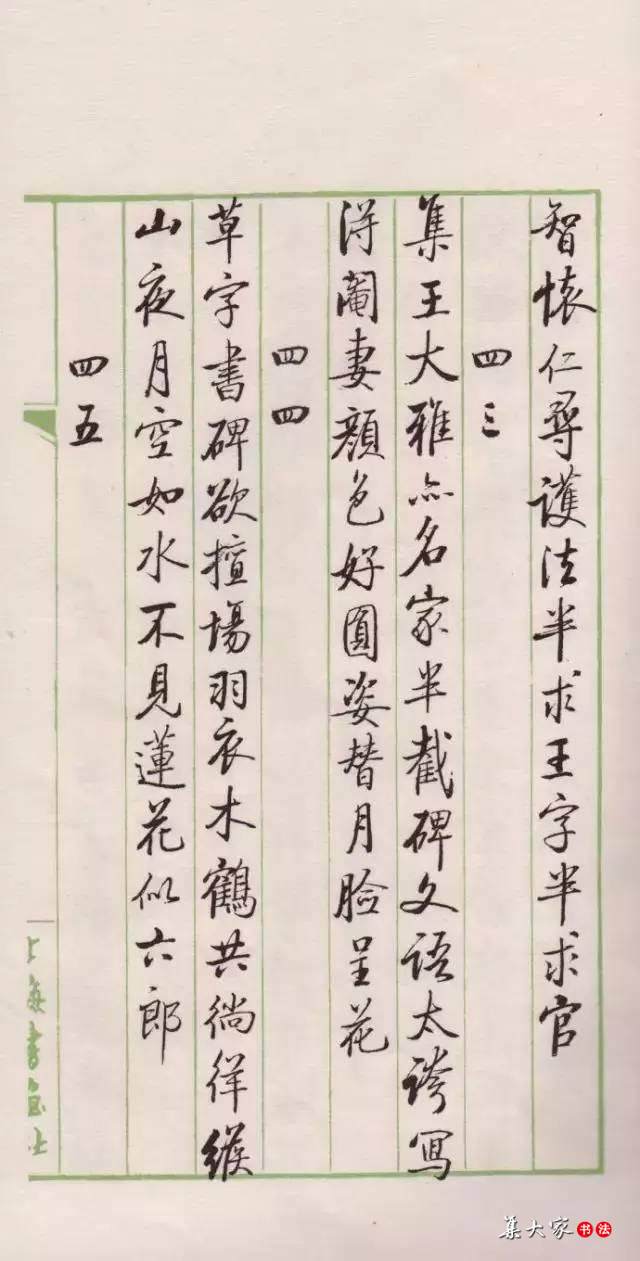 智懷仁尋護法半求王字半求官
四三
集王大雅亦名家半截碑文語太誇寫
得閹妻顏色好圓姿替月臉呈花
四四
草字書碑欲擅場羽衣木鶴共徜徉緱
山夜月空如水不見蓮花似六郎
四五
上海書画社
集大家书法